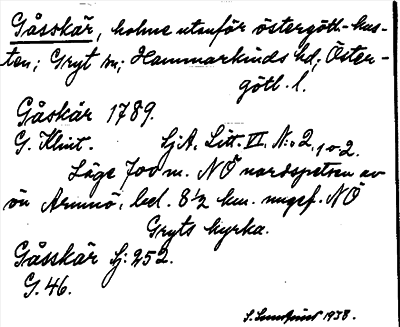 Gåsskär, holme utanför östergötl.-kus-
ten; Gryt sn; Hammarkinds hd; Öster-
götl. l.
Gåskär 1789.
G. Klint. SjA. Litt. VI, N:o 2, 1 o 2.
Läge 700 m. NÖ nordspetsen av
ön Armnö, bel. 8½ km. ungef. NÖ
Gryts kyrka.
Gåsskär Sj: 252.
G. 46.
S. 1938.